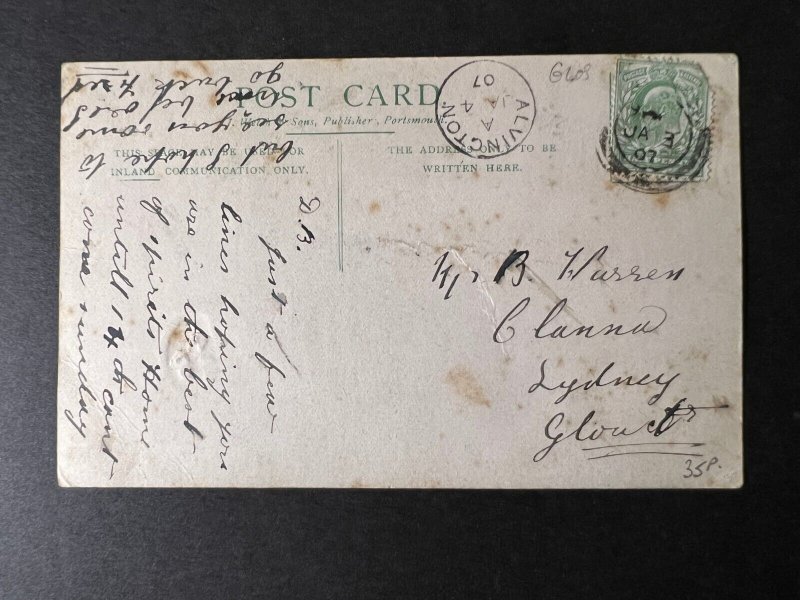 POST CARD
Sons, Publisher, Portsmouth.
THIS SPACE MAY BE USED FOR
INLAND COMMUNICATION ONLY.
THE ADDRESS ONLY TO BE
WRITTEN HERE.
ALVINGTON
A
JA 4
07
Glos
JA 3
07
D. B.
Just a few
lines hoping you
are in the best
of spirits Home
untill 14th cant
come sunday
but I hope to
see you some
go back
Mr B. Warren
Clanna
Lydney
Glouc
35p.